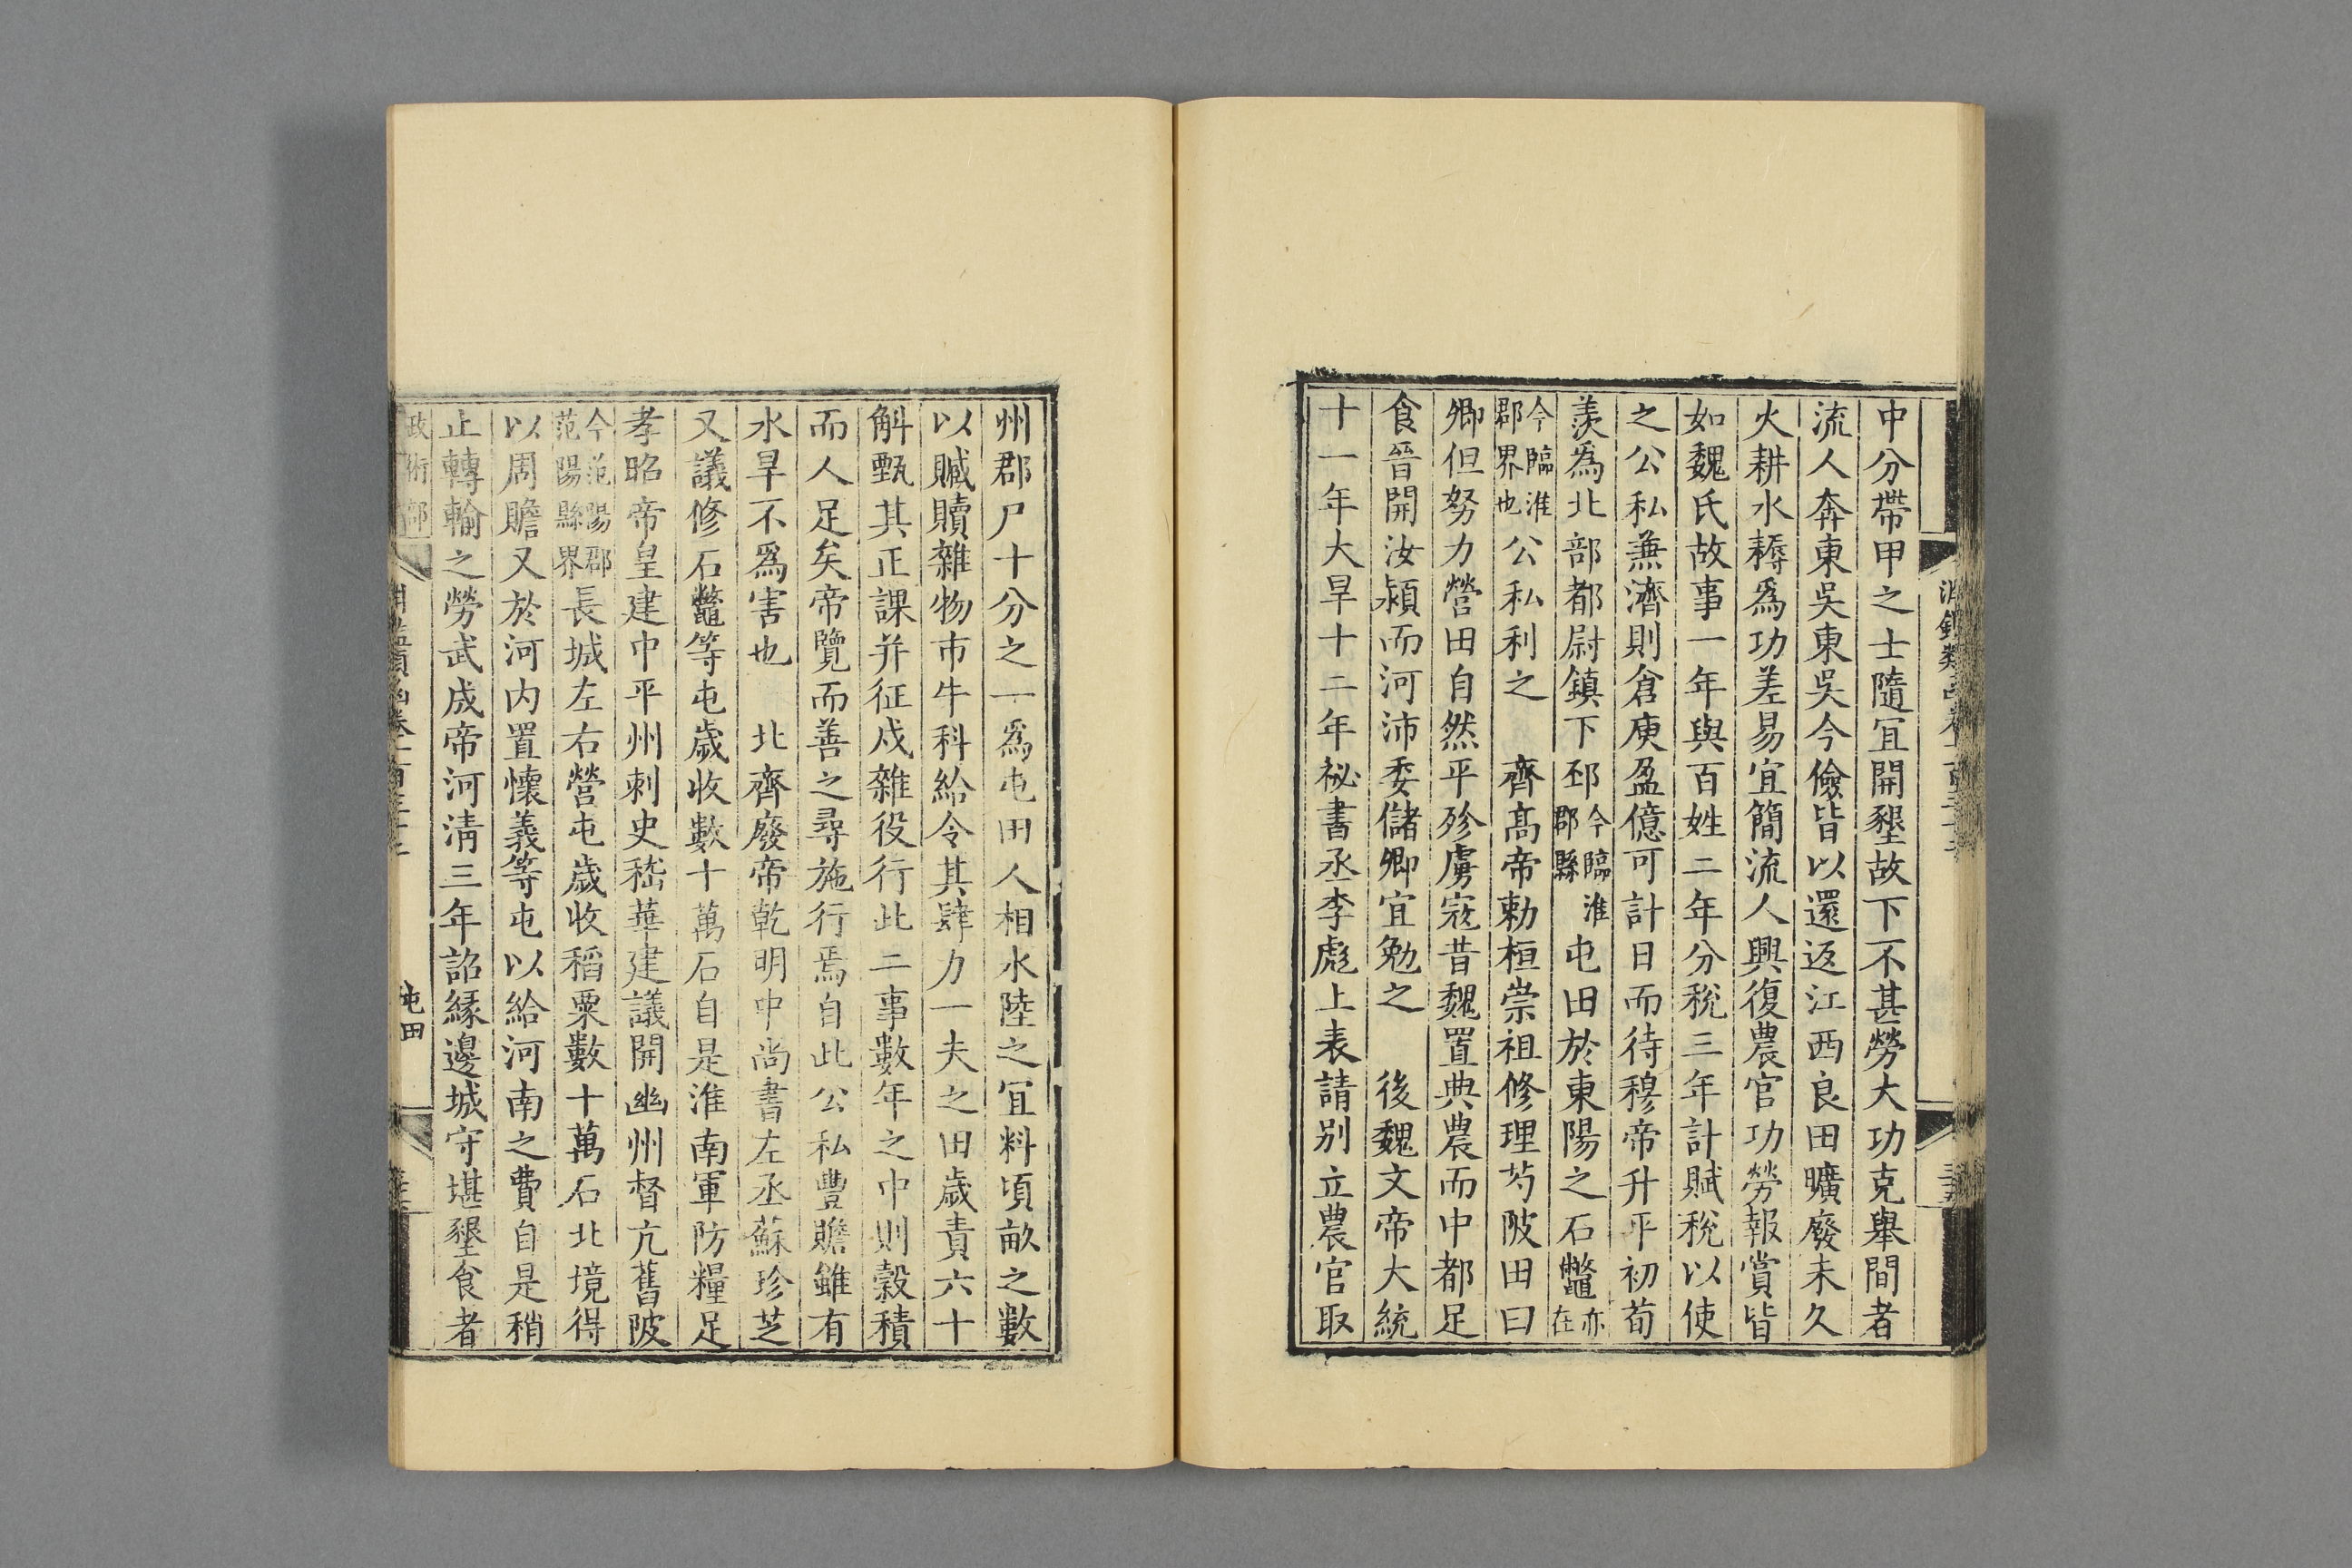 中分帶甲之士隨宜開墾故下不甚勞大功克舉間者
流人奔東吳東吳今儉皆以還返江西良田曠廢未久
火耕水耨爲功差易宜簡流人興復農官功勞報賞皆
如魏氏故事一年與百姓二年分稅三年計賦稅以使
之公私兼濟則倉庾盈億可計日而待穆帝升平初荀
羡爲北部都尉鎮下邳今臨淮郡縣屯田於東陽之石鼈亦在
今臨淮郡界也公私利之　齊高帝勅桓崇祖修理芍陂田曰
卿但努力營田自然平殄虜寇昔魏置典農而中都足
食晉開汝潁而河沛委儲卿宜勉之　後魏文帝大統
十一年大旱十二年祕書丞李彪上表請別立農官取
州郡戸十分之一爲屯田人相水陸之宜料頃畝之數
以贓贖雜物市牛科給令其肆力一夫之田歲責六十
斛甄其正課并征戍雜役行此二事數年之中則穀積
而人足矣帝覽而善之尋施行焉自此公私豐贍雖有
水旱不爲害也　北齊廢帝乾明中尚書左丞蘇珍芝
又議修石鼈等屯歲收數十萬石自是淮南軍防糧足
孝昭帝皇建中平州刺史嵇華建議開幽州督亢舊陂
今范陽郡范陽縣界長城左右營屯歲收稻粟數十萬石北境得
以周贍又於河內置懷義等屯以給河南之費自是稍
止轉輸之勞武成帝河淸三年詔緣邊城守堪墾食者
政術部
屯田